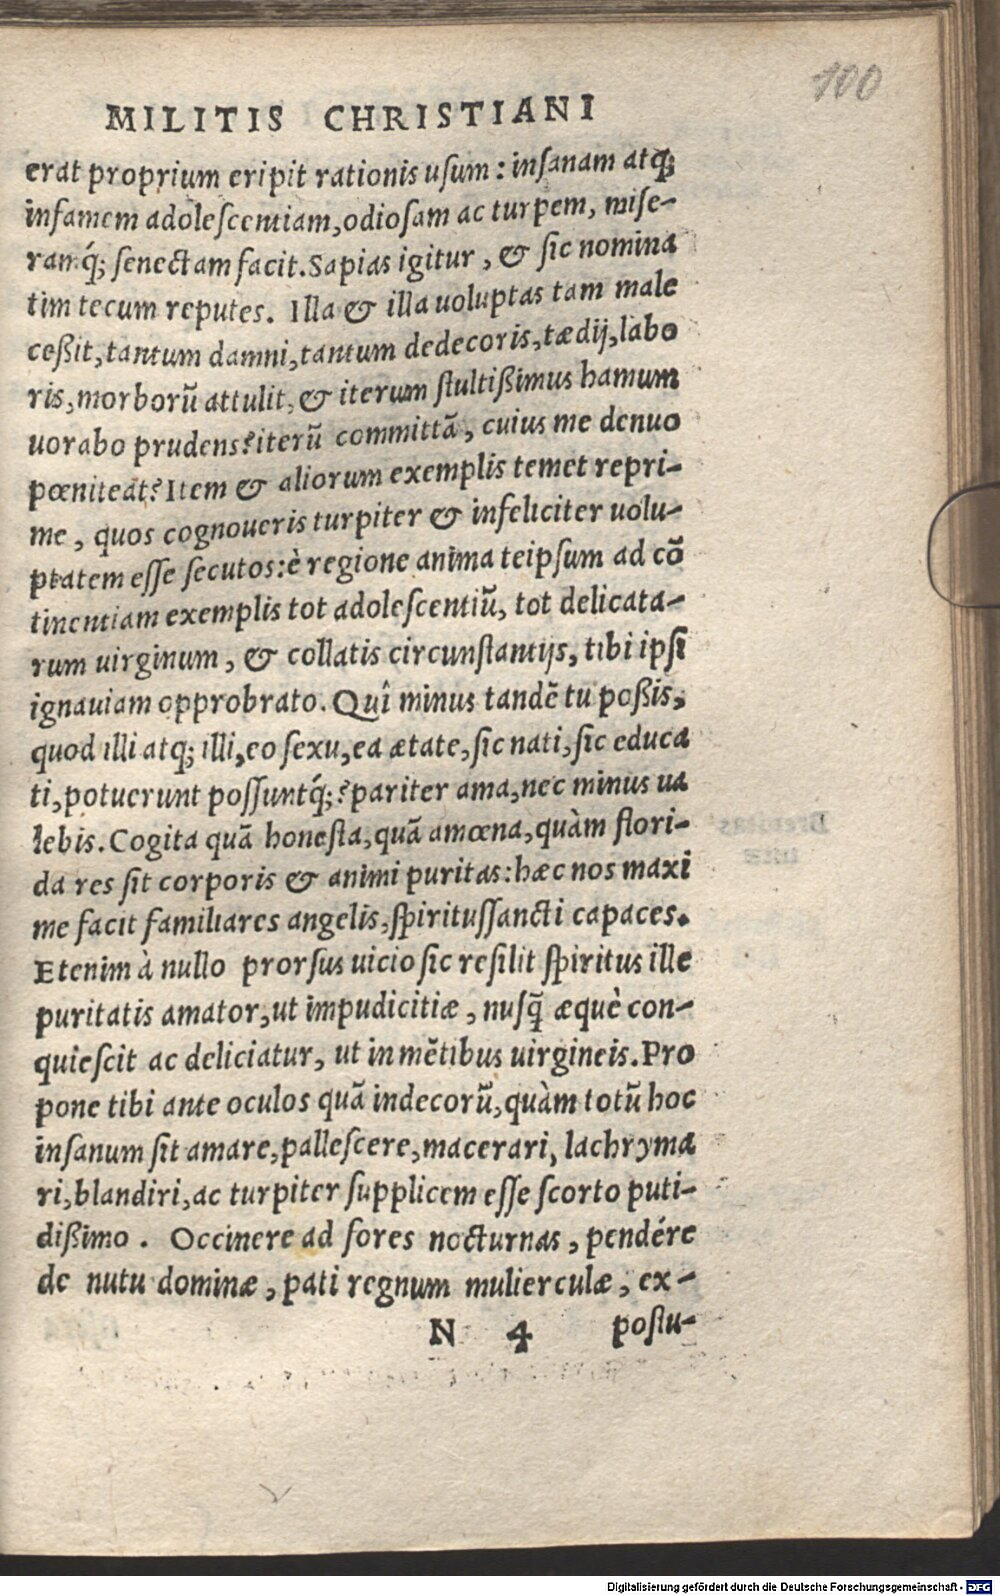 100
MILITIS CHRISTIANI
erat proprium eripit rationis uſum: inſanam atq́;
infamem adoleſcentiam, odioſam ac turpem, miſe-
ramq́; ſenectam facit. Sapias igitur, & ſic nomina
tim tecum reputes. Illa & illa uoluptas tam male
ceßit, tantum damni, tantum dedecoris, tædij, labo
ris, morborũ attulit, & iterum ſtultißimus hamum
uorabo prudens? iterũ committã, cuius me denuo
pœniteat? Item & aliorum exemplis temet repri-
me, quos cognoueris turpiter & infeliciter uolu-
ptatem eſſe ſecutos: è regione anima teipſum ad cõ
tinentiam exemplis tot adoleſcentiũ, tot delicata-
rum uirginum, & collatis circunſtantijs, tibi ipſi
ignauiam opprobrato. Quî minus tandẽ tu poßis,
quod illi atq; illi, eo ſexu, ea ætate, ſic nati, ſic educa
ti, potuerunt poſſuntq́;? pariter ama, nec minus ua
lebis. Cogita quã honeſta, quã amœna, quàm flori-
da res ſit corporis & animi puritas: hæc nos maxi
me facit familiares angelis, ſpirituſſancti capaces.
Etenim à nullo prorſus uicio ſic reſilit ſpiritus ille
puritatis amator, ut impudicitiæ, nuſq̃ æquè con-
quieſcit ac deliciatur, ut in mẽtibus uirgineis. Pro
pone tibi ante oculos quã indecorũ, quàm totũ hoc
inſanum ſit amare, palleſcere, macerari, lachryma
ri, blandiri, ac turpiter ſupplicem eſſe ſcorto puti-
dißimo. Occinere ad fores nocturnas, pendére
de nutu dominæ, pati regnum mulierculæ, ex-
N 4 poſtu-
Digitalisierung gefördert durch die Deutsche Forschungsgemeinschaft - DFG